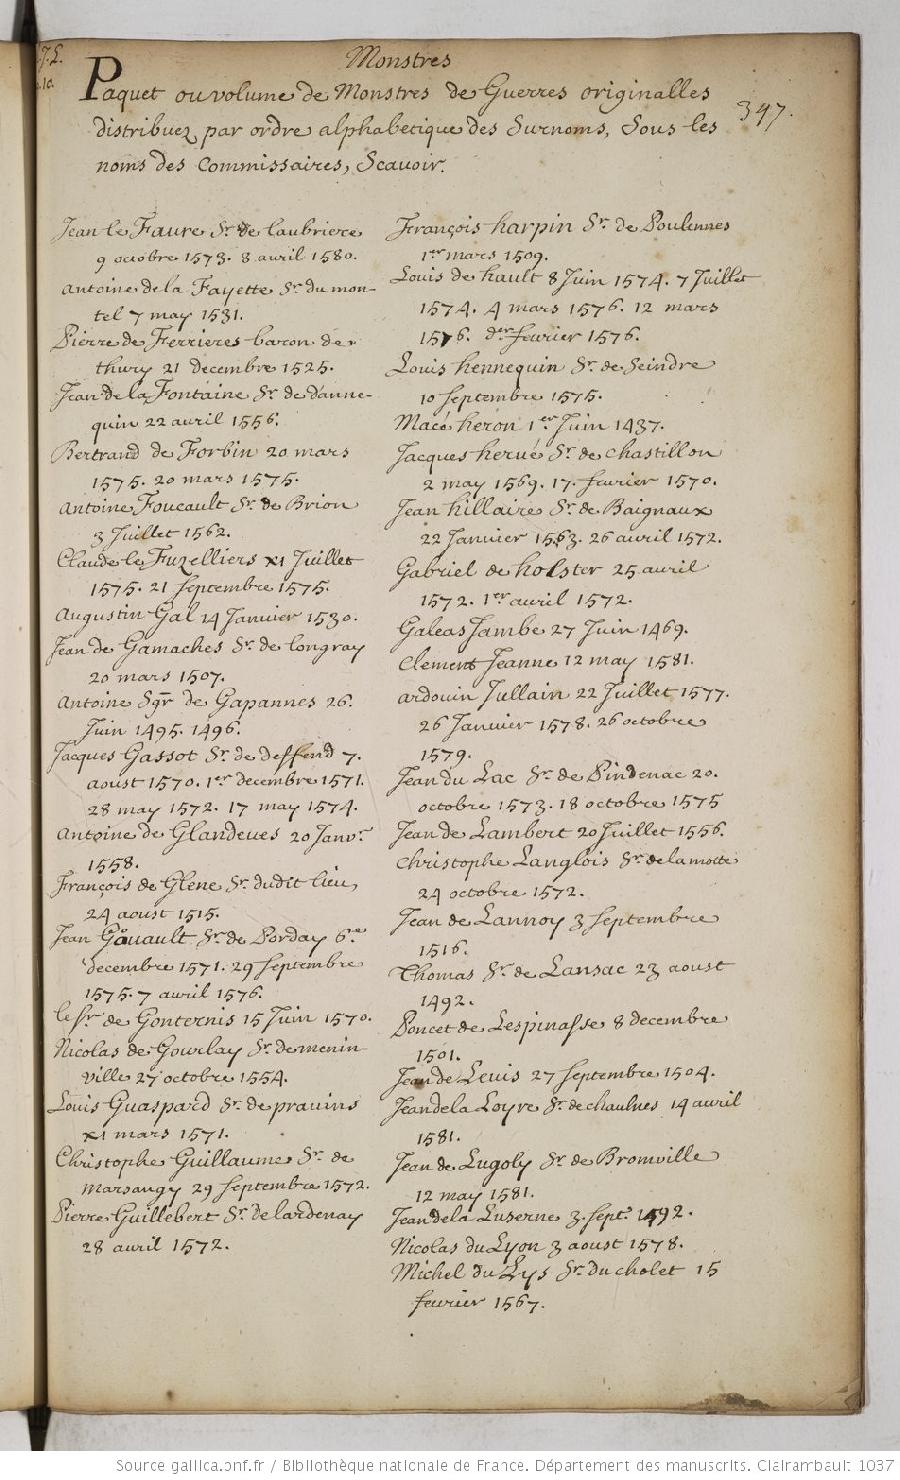 Monstres
Paquet ou volume de Monstres de Guerres originalles
distribuez par ordre alphabetique des Surnoms, Sous les
noms des Commissaires, Scavoir.
347.
Jean le Faure Sr. de laubriere
9 octobre 1573. 8 avril 1580.
Antoine de la Fayette Sr. du mon-
tel 7 may 1531.
Pierre de Ferrieres baron de
thury 21 decembre 1525.
Jean de la Fontaine Sr. de danne-
quin 22 avril 1556.
Bertrand de Forbin 20 mars
1575. 20 mars 1575.
Antoine Foucault Sr. de Brion
3 Juillet 1562.
Claude le Fuzelliers xi Juillet
1575. 21 Septembre 1575.
Augustin Gal 14 Janvier 1530.
Jean de Gamaches Sr. de longray
20 mars 1507.
Antoine Sgr. de Gapannes 26.
Juin 1495. 1496.
Jacques Gassot Sr. de deffend 7.
aoust 1570. 1er decembre 1571.
28 may 1572. 17 may 1574.
Antoine de Glandeves 20 Janvr.
1558.
François de Glene Sr. dudit lieu
24 aoust 1515.
Jean Gavault Sr. de Porday 6e
decembre 1571. 29 Septembre
1575. 7 avril 1576.
le Sr. de Gonternis 15 Juin 1570.
Nicolas de Gourlay Sr. de menin
ville 27 octobre 1554.
Louis Guaspard Sr. de pravins
xi mars 1571.
Christophe Guillaume Sr. de
Marsangy 29 Septembre 1572.
Pierre Guillebert Sr. de lardenay
28 avril 1572.
François harpin Sr. de Poulennes
1er mars 1509.
Louis de hault 8 Juin 1574. 7 Juillet
1574. 4 mars 1576. 12 mars
1576. der fevrier 1576.
Louis hennequin Sr. de Seindre
10 Septembre 1575.
Macé heron 1er Juin 1437.
Jacques hervé Sr. de chastillon
2 may 1569. 17. fevrier 1570.
Jean hillaire Sr. de Baignaux
22 Janvier 1563. 26 avril 1572.
Gabriel de holster 25 avril
1572. 1er avril 1572.
Galeas Jambe 27 Juin 1469.
Clement Jeanne 12 may 1581.
ardouin Jullain 22 Juillet 1577.
26 Janvier 1578. 26 octobre
1579.
Jean du Lac Sr. de Pindenac 20.
octobre 1573. 18 octobre 1575
Jean de Lambert 20 Juillet 1556.
Christophe Langlois Sr. de la motte
24 octobre 1572.
Jean de Lannoy 3 Septembre
1516.
Thomas Sr. de Lansac 23 aoust
1492.
Poncet de Lespinasse 8 decembre
1501.
Jean de Levis 27 Septembre 1504.
Jean de la Loyre Sr. de chaulnes 14 avril
1581.
Jean de Lugoly Sr. de Bromville
12 may 1581.
Jean de la Luserne 3. Sept. 1492.
Nicolas du Lyon 3 aoust 1578.
Michel du Lys Sr. du cholet 15
fevrier 1567.
Source gallica.bnf.fr / Bibliothèque nationale de France. Département des manuscrits. Clairambault 1037